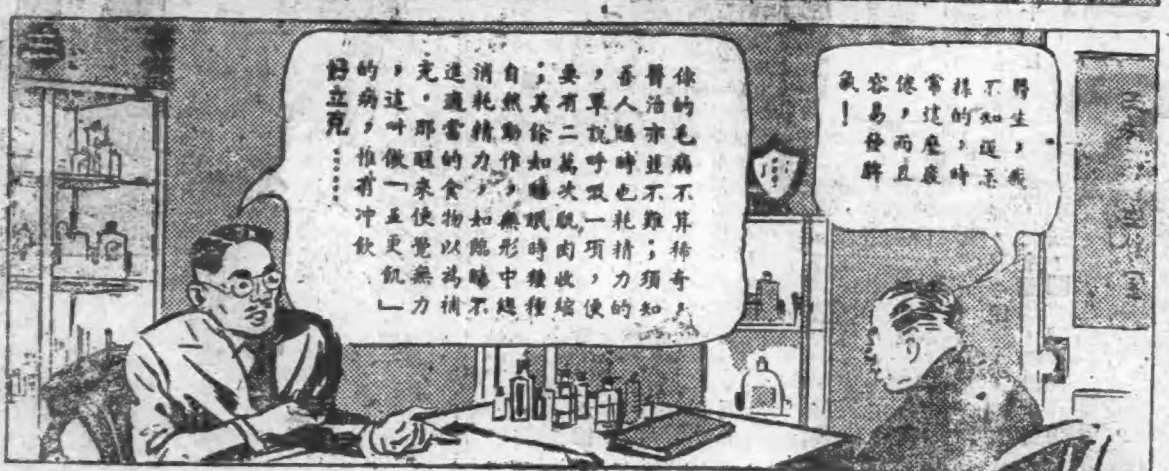 醫生，我
不知道怎
樣的，時
常這麼疲
倦，而且
容易發脾
氣！
你的毛病不算稀奇，
醫治亦並不難；須知
吾人睡時也耗精力的
，單說呼吸一項，便
要有二萬次肌肉收縮
；其餘如睡眠時種種
自然動作，無形中總
消耗精力，如臨睡不
進適當的食物以為補
充，那醒來便覺無力
，這叫做「五更飢」
的病，惟有冲飲
好立克……